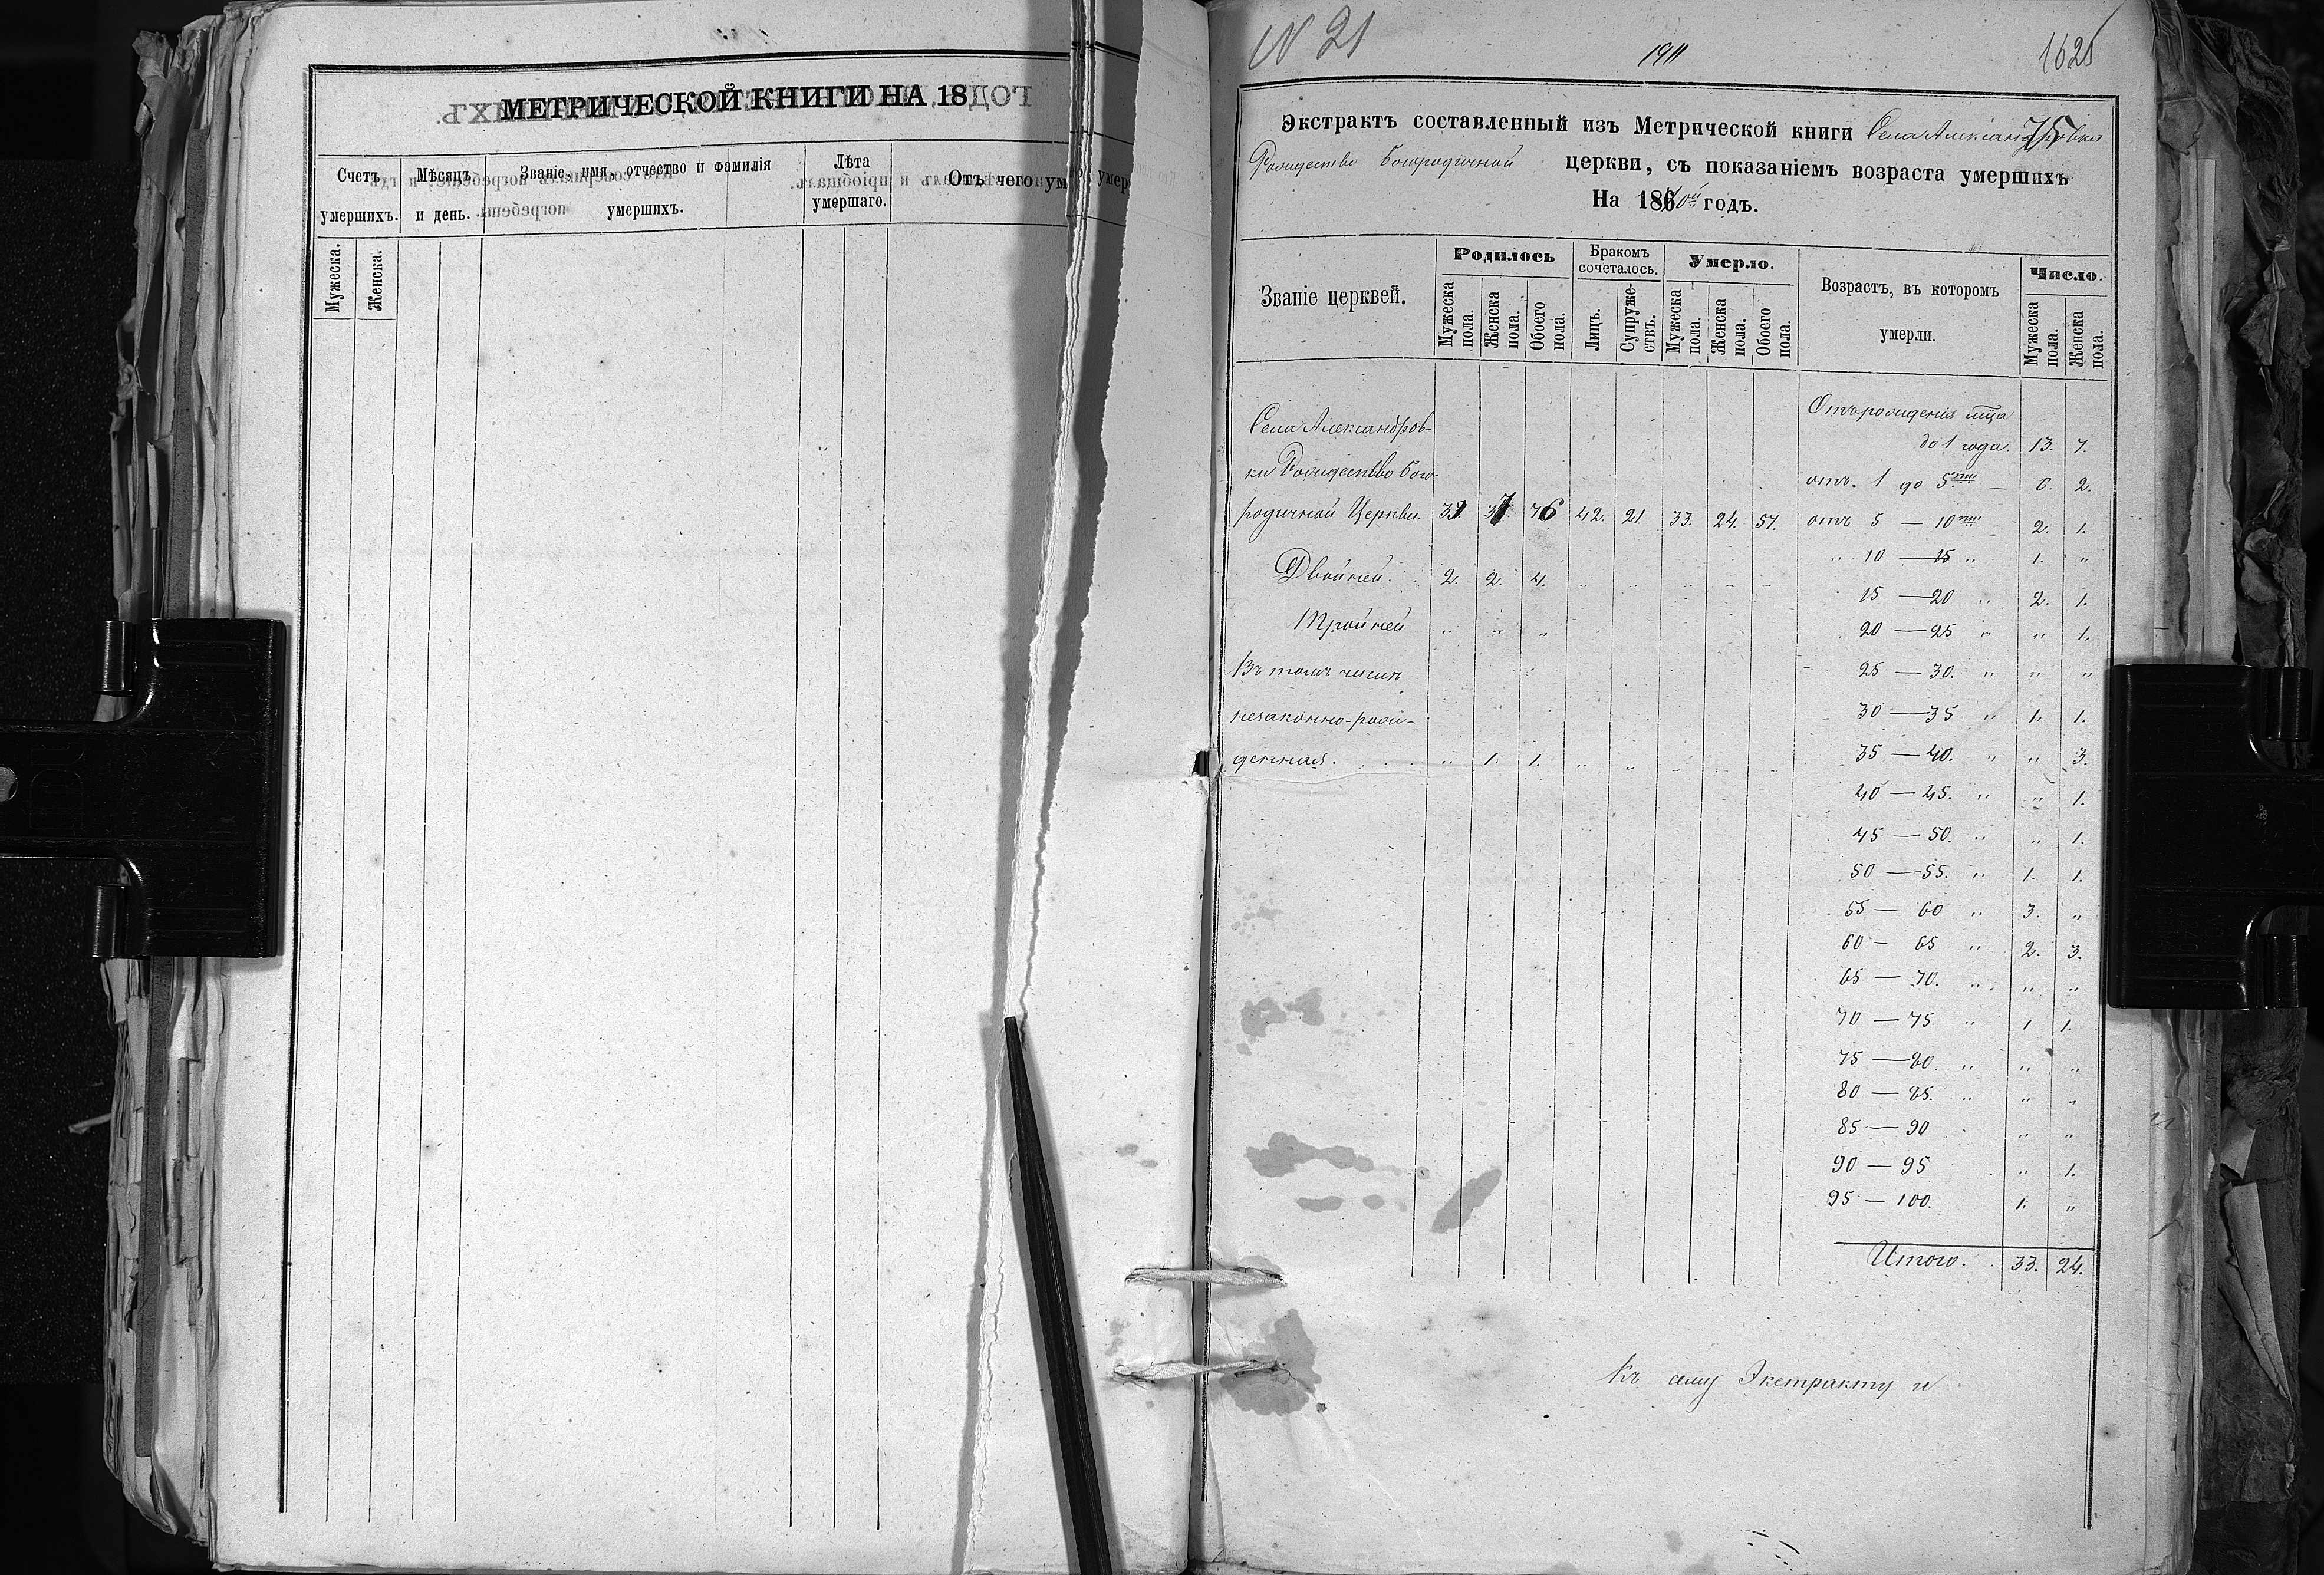 МЕТРИЧЕСКОЙ КНИГИ НА 18
Счетъ умершихъ.
Мужеска.
Женска.
Мѣсяцъ и день.
Званіе, имя, отчество и фамилія умершихъ.
Лѣта умершаго.
Отъ чего
N 21
1911
Экстрактъ составленный изъ Метрической книги Села Александровки
75
Рождество Богородичной церкви, съ показаніемъ возраста умершихъ
На 1870й годъ.
Званіе церквей.
Родилось
Мужеска пола.
Женска пола.
Обоего пола.
Бракомъ сочеталось.
Лицъ.
Супружествъ.
Умерло.
Мужеска пола.
Женска пола.
Обоего пола.
Возрастъ, въ которомъ умерли.
Число.
Мужеска пола.
Женска пола.
Села Александров-
ки Рождество Бого-
родичной Церкви. 39. 37. 76 42. 21. 33. 24. 57.
Двойней. 2. 2. 4. " " " " "
Тройней " " "
Въ томъ числѣ
незаконно-рож-
денная. " 1. 1. " " " " "
Отъ рожденія
до 1 года. 13. 7.
отъ. 1 до 5ти — 6. 2.
отъ 5 — 10ти 2. 1.
" 10 — 15 " 1. "
15 — 20 " 2. 1.
20 — 25 " " 1.
25 — 30. " " "
30 — 35 " 1. 1.
35 — 40. " " 3.
40 — 45. " " 1.
45 — 50. " " 1.
50 — 55. " 1. 1.
55 — 60 " 3. "
60 — 65 " 2. 3.
65 — 70. " " "
70 — 75. " 1 1.
75 — 80 " " "
80 — 85. " " "
85 — 90 " "
90 — 95 " 1.
95 — 100. 1. "
Итого. 33. 24.
Къ сему Экстракту и